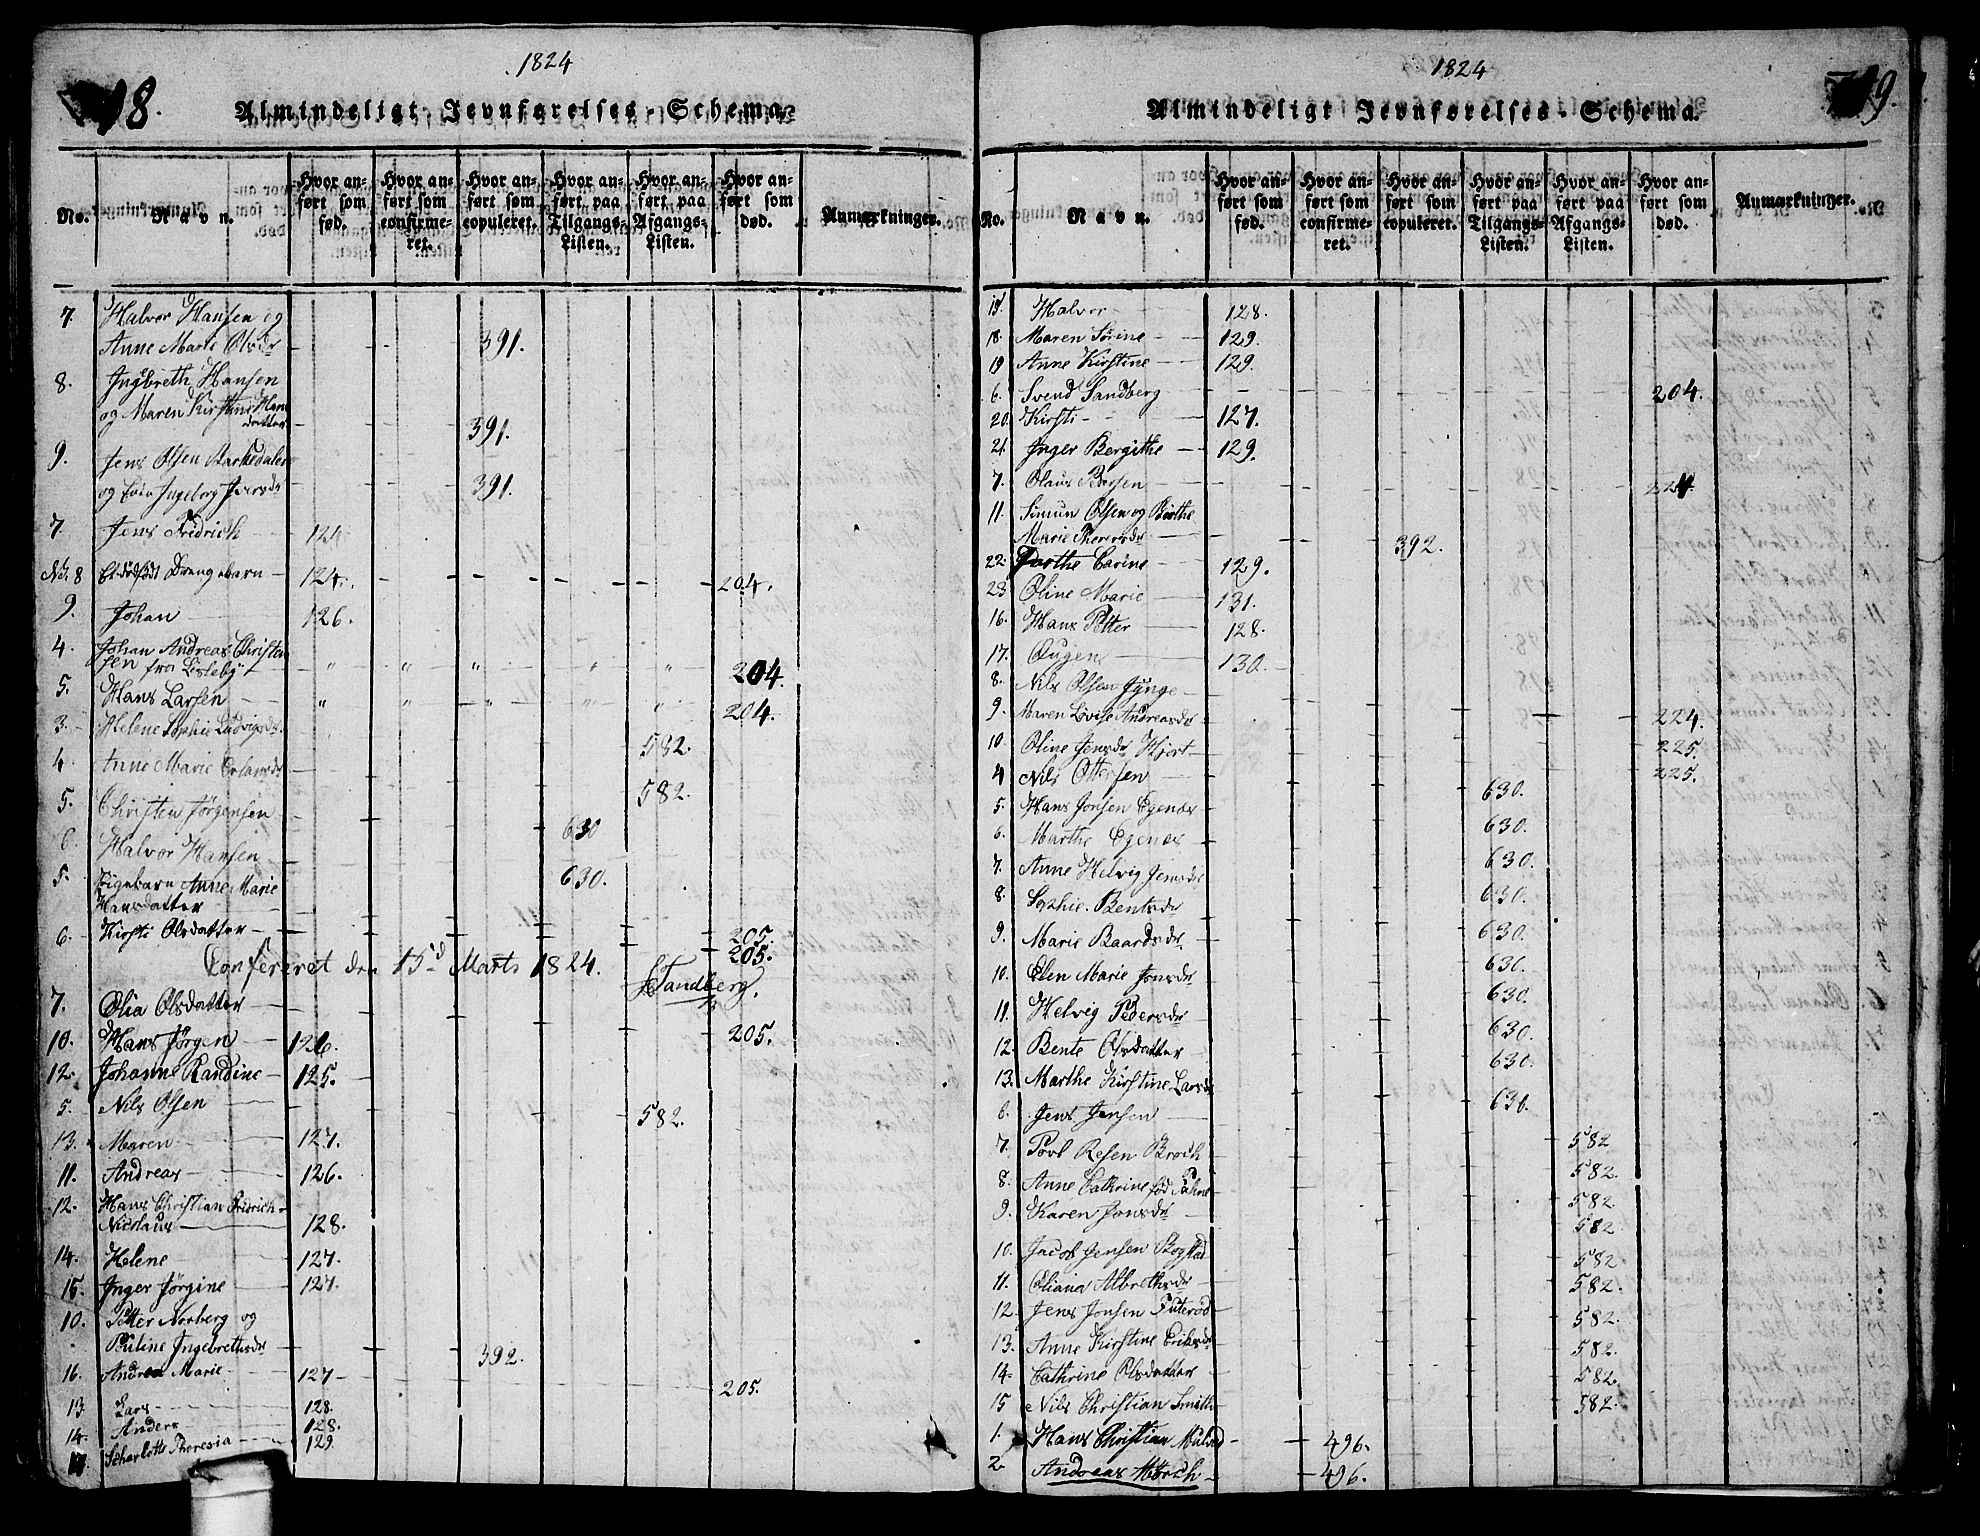 1824
18.
Almindeligt Jevnførelses-Schema.
No. Navn. Hvor anført som fød. Hvor anført som confirmeret. Hvor anført som copuleret. Hvor anført paa Tilgangs-Listen. Hvor anført paa Afgangs-Listen. Hvor anført som død. Anmærkninger.
7. Halvor Hansen og
Anne Marie Olsdr 391.
8. Ingebreth Hansen
og Maren Kirstine Han
datter 391.
9. Jens Olsen
og Ingeborg Iversdr 391.
7. Jens Fridrich 124
No. 8 Et dødfødt Drengebarn 124. 204.
9. Johan 126.
4. Johan Andreas Christen
sen fra Lisleby 204.
5. Hans Larsen 204.
3. Helene Sophie Ludvigsdr. 582.
4. Anne Marie Erlandsdr 582.
5. Christen Jørgensen 630
6. Halvor Hansen 630.
5. Pigebarn Anne Marie
Hansdatter 205.
6. Kirsti Olsdatter 205.
Confereret den 15d Marts 1824. Sandberg.
7. Olia Olsdatter 205.
10. Hans Jørgen 126.
12. Johanne Randine 125.
5. Nils Olsen 582.
13. Maren 127.
11. Andreas 126.
12. Hans Christian Fridrich
Nicolaus 128.
14. Helene 127.
15. Inger Jørgine 127.
10. Petter Norberg og
Pauline Ingebrethsdr 392.
16. Andrea Marie 127 205.
13. Lars 128.
14. Anders 128.
17. Scharlotte Theresia 129.
1824
19.
Almindeligt Jevnførelses-Schema.
No. Navn. Hvor anført som fød. Hvor anført som confirmeret. Hvor anført som copuleret. Hvor anført paa Tilgangs-Listen. Hvor anført paa Afgangs-Listen. Hvor anført som død. Anmærkninger.
15. Halvor 128.
18. Maren Sørine 129.
19 Anne Kirstine 129.
6. Svend Sandberg 204.
20. Kirsti 127.
21. Inger Bergithe 129.
7. Olaus 224.
11. Simun Olsen og Birthe
Marie 392.
22. Dorthe Carine 129.
23 Oline Marie 131.
16. Hans Petter 128.
17. Eugen 130.
8. Nils Olsen Jynge 224.
9. Maren Lovise Andreasdr 225.
10. Oline Jensdr Hjort 225.
4 Nils Ottersen 630.
5. Hans Jonsen Egenæs 630.
6. Marthe Egenæs 630.
7. Anne Helvig Jensdr 630.
8. Sophie Bentsdr 630.
9. Marie Baardsdr. 630.
10. Elen Marie Jonsdr 630.
11. Helvig Pedersdr 630.
12. Bente Olsdatter 630.
13. Marthe Kirstine Larsdr 630.
6. Jens Jensen 582
7. Povl Resen Broch 582.
8. Anne Cathrine fød 582.
9. Karen Jonsdr 582
10. Jacob Jensen Bogstad 582
11. Eliana Albrethsdr 582.
12. Jens Jonsen Futerød 582.
13. Anne Kirstine Eriksdr 582.
14. Cathrine Olsdatter 582.
15 Nils Christian Smith 582.
1. Hans Christian 496.
2. Andreas Mørch 496.